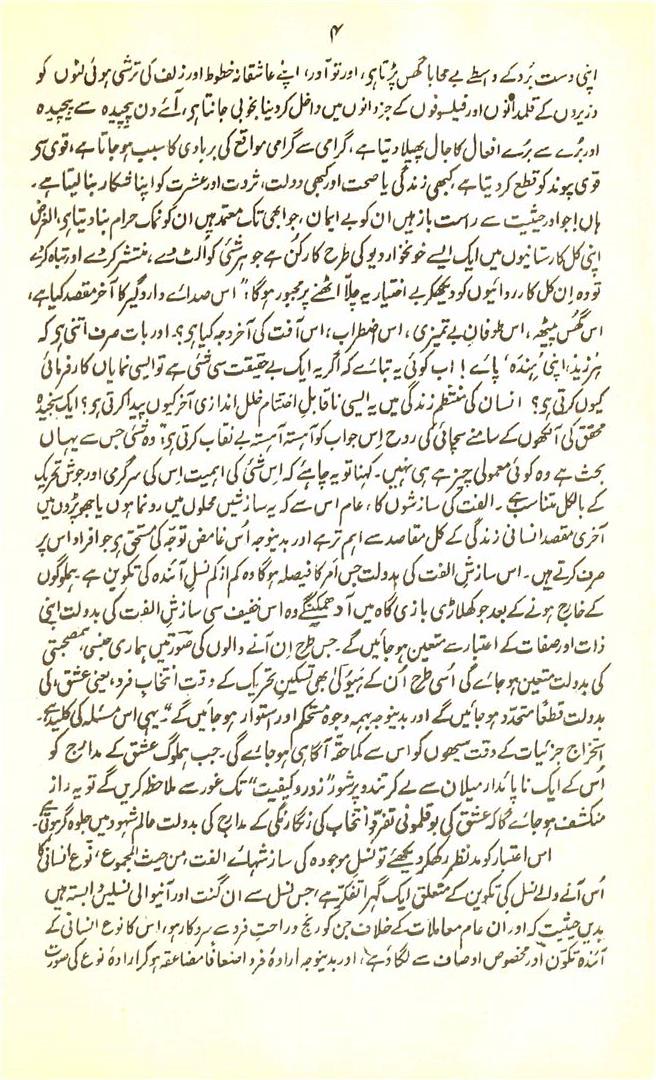 ۴
اپنی دست بُرد کے واسطے بے محابا گھس پڑتا ہی، اور تو آور، اپنے عاشقانہ خطوط اور زلف کی ترشی ہوئی لٹوں کو
وزیروں کے قلمدانوں اور فیلسوفوں کے جزدانوں میں داخل کردینا بخوبی جانتا ہی، آئے دن پیچیدہ سے پیچیدہ
اور بُرے سے بُرے افعال کا جال پھیلا دیتا ہے، گرامی سے گرامی مواقع کی بربادی کا سبب ہوجاتا ہے، قوی سی
قوی پیوند کو قطع کردیتا ہے، کبھی زندگی یا صحت اور کبھی دولت، ثروت اور عشرت کو اپنا شکار بنا لیتا ہے۔
ہاں! جو اور حیثیت سے راست باز ہیں ان کو بے ایمان، جو ابھی تک معتمد ہیں ان کو نمک حرام بنا دیتا ہی، الغرض
اپنی کل کارستانیوں میں ایک ایسے خونخوار دیو کی طرح کارکُن ہے جو ہر شئی کو اُلٹ دے، منتشر کردے اور تباہ کردے
تو وہ اِن کل کارروائیوں کو دیکھکر بے اختیار یہ چلّا اٹھنے پر مجبور ہوگا: "اس صدائے داروگیر کا آخر مقصد کیا ہے،
اس گھُس پیٹھ، اس طوفانِ بے تمیزی، اس اضطراب، اس آفت کی آخر وجہ کیا ہو؟۔ اور بات صرف اتنی ہی کہ
ہر زید، اپنی 'ہندہ' پائے! اب کوئی یہ بتائے کہ اگر یہ ایک بے حقیقت سی شئی ہے تو ایسی نمایاں کارفرمائی
کیوں کرتی ہو؟ انسان کی منتظم زندگی میں یہ ایسی ناقابلِ اختتام خلل اندازی آخر کیوں پیدا کرتی ہو؟ ایک سنجیدہ
محقق کی آنکھوں کے سامنے سچائی کی روح اِس جواب کو آہستہ آہستہ بے نقاب کرتی ہو: وہ شئی جس سے یہاں
بحث ہے وہ کوئی معمولی چیز ہے ہی نہیں۔ کہنا تو یہ چاہئے کہ اِس شئی کی اہمیت اِس کی سرگرمی اور جوش تحریک
کے بالکل متناسب ہے۔ الفت کی سازشوں کا، عام اس سے کہ یہ سازشیں محلوں میں رونما ہوں یا جھوپڑوں میں
آخری مقصد انسانی زندگی کے کل مقاصد سے اہم تر ہے اور بدینوجہ اُس غامض توجہ کی مستحق ہو جو افراد اس پر
صرف کرتے ہیں۔ اس سازشِ الفت کی بدولت جس اَمر کا فیصلہ ہوگا وہ کم از کم نسلِ آئندہ کی تکوین ہے۔ ہملوگوں
کے خارج ہونے کے بعد جو کھلاڑی بازی گاہ میں آ دھمکینگے وہ اس خفیف سی سازشِ الفت کی بدولت اپنی
ذات اور صفات کے اعتبار سے متعین ہوجائیں گے۔ جس طرح اِن آنے والوں کی صورتیں ہماری جنسی ہمصحبتی
کی بدولت متعین ہوجائے گی اُسی طرح اُن کے ہَیُولیٰ بھی تسکینِ تحریک کے وقت انتخابِ فرد، یعنی عشق، کی
بدولت قطعاً متحدّد ہوجائیں گے اور بدینوجہ بہمہ وجوہ مستحکم اور استوار ہوجائیں گے"۔ یہی اس مسئلہ کی کلید ہے۔
استخراج جزئیات کے وقت سبھوں کو اس سے کماحقہٗ آگاہی ہوجائے گی۔ جب ہملوگ عشق کے مدارج کو
اُس کے ایک ناپائدار میلان سے لے کر تندو پرشور "زور و کیفیت" تک غور سے ملاحظہ کریں گے تو یہ راز
منکشف ہوجائے گا کہ عشق کی بوقلمونی تفردِ انتخاب کی رنگارنگی کے مدارج کی بدولت عالم شہود میں جلوہ گر ہوتی ہے۔
اس اعتبار کو مدنظر رکھکر دیکھئے تو نسلِ موجودہ کی سازشہائے الفت، من حیث المجموع، نوع انسانی کا
اُس آنے والے نسل کی تکوین کے متعلق ایک گہرا تفکّر ہے، جس نسل سے ان گنت اور آنیوالی نسلیں وابستہ ہیں
بدیں حیثیت کہ اور ان عام معاملات کے خلاف جن کو رنج و راحتِ فرد سے سروکار ہو، اس کا نوع انسانی کے
آئندہ تکوّن اور مخصوص اوصاف سے لگاؤ ہے، اور بدینوجہ ارادۂ فرد اضعافاً مضاعفہ ہوکر ارادۂ نوع کی صورت